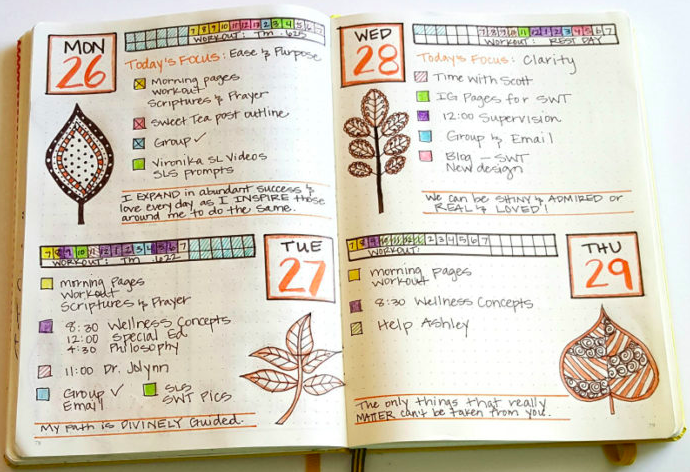 MON
26
7 8 9 10 11 12 1 2 3 4 5 6 7
WORKOUT: TM - 625
Today's Focus: Ease & Purpose
Morning pages
workout
Scriptures & Prayer
Sweet Tea post outline
Group ✓
Vironika SL Videos
SLS prompts
I EXPAND in abundant success &
love every day as I INSPIRE those
around me to do the same.
TUE
27
7 8 9 10 11 12 1 2 3 4 5 6 7
WORKOUT: TM 622
morning pages
Workout
Scriptures & Prayer
8:30 Wellness Concepts
12:00 Special Ed
4:30 Philosophy
11:00 Dr. Jolynn
Group ✓
Email
SLS
SWT Pics
My path is DIVINELY Guided.
WED
28
7 8 9 10 11 12 1 2 3 4 5 6 7
WORKOUT: REST DAY
Today's Focus: Clarity
Time with Scott
IG Pages for SWT
12:00 Supervision
Group & Email
Blog - SWT
New design
We can be SHINY & ADMIRED or
REAL & LOVED!
THU
29
7 8 9 10 11 12 1 2 3 4 5 6 7
WORKOUT:
morning pages
workout
8:30 Wellness Concepts
Help Ashley
The only things that really
MATTER can't be taken from you.